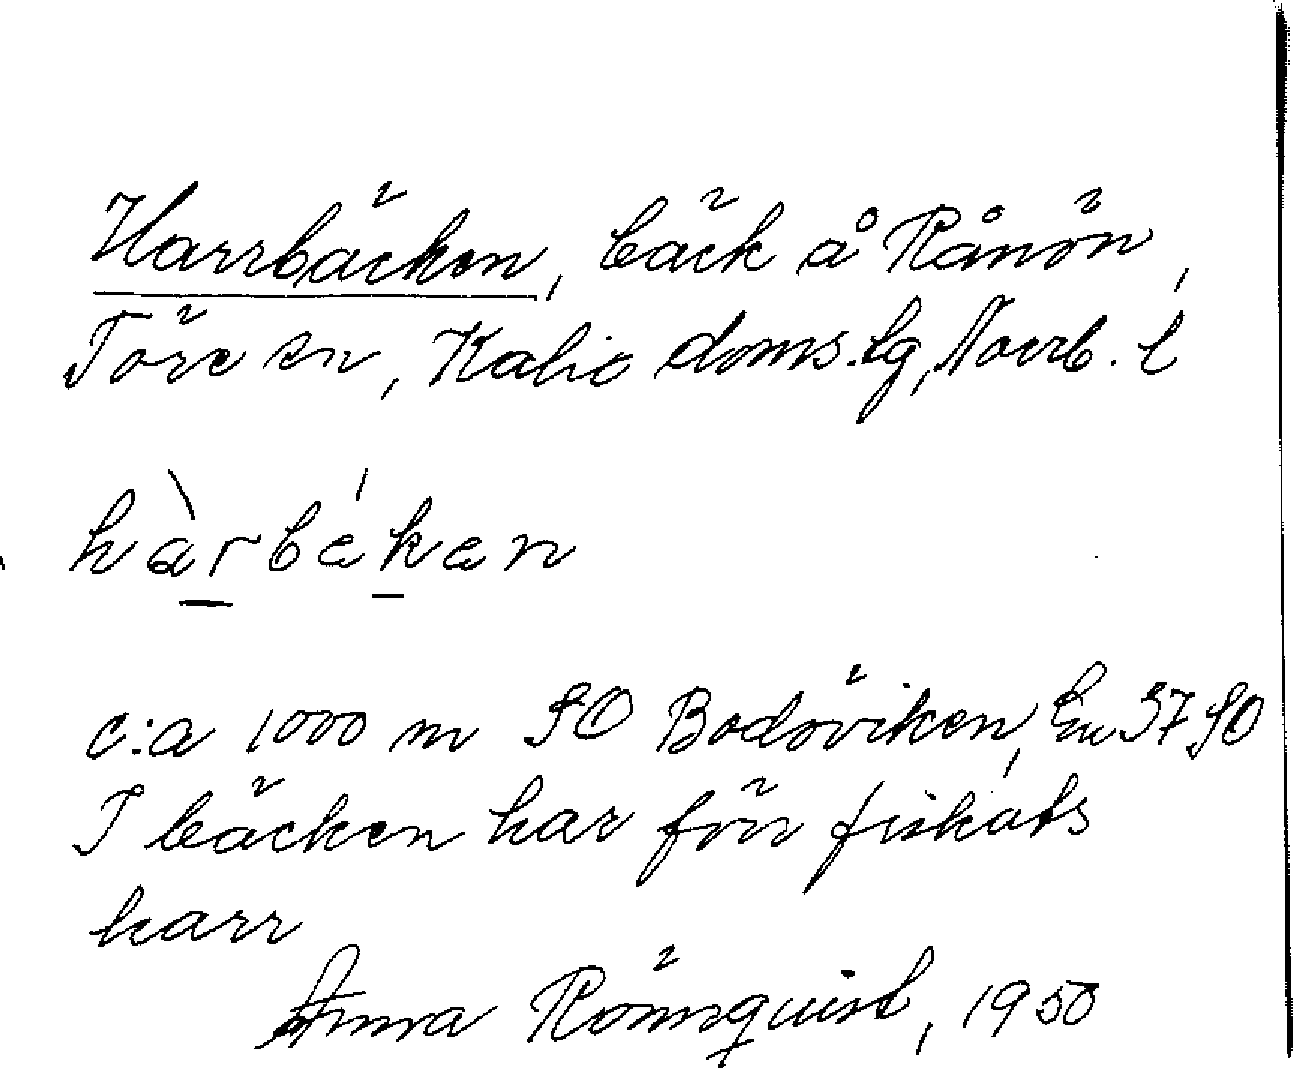 Harrbäcken, bäck å Rånön,
Töre sn, Kalix doms.lg, Norrb. l
hàrbékan
c:a 1000 m SO Bodöviken, En 37 SO
I bäcken har förr fiskats
harr
Anna Rönnquist, 1950